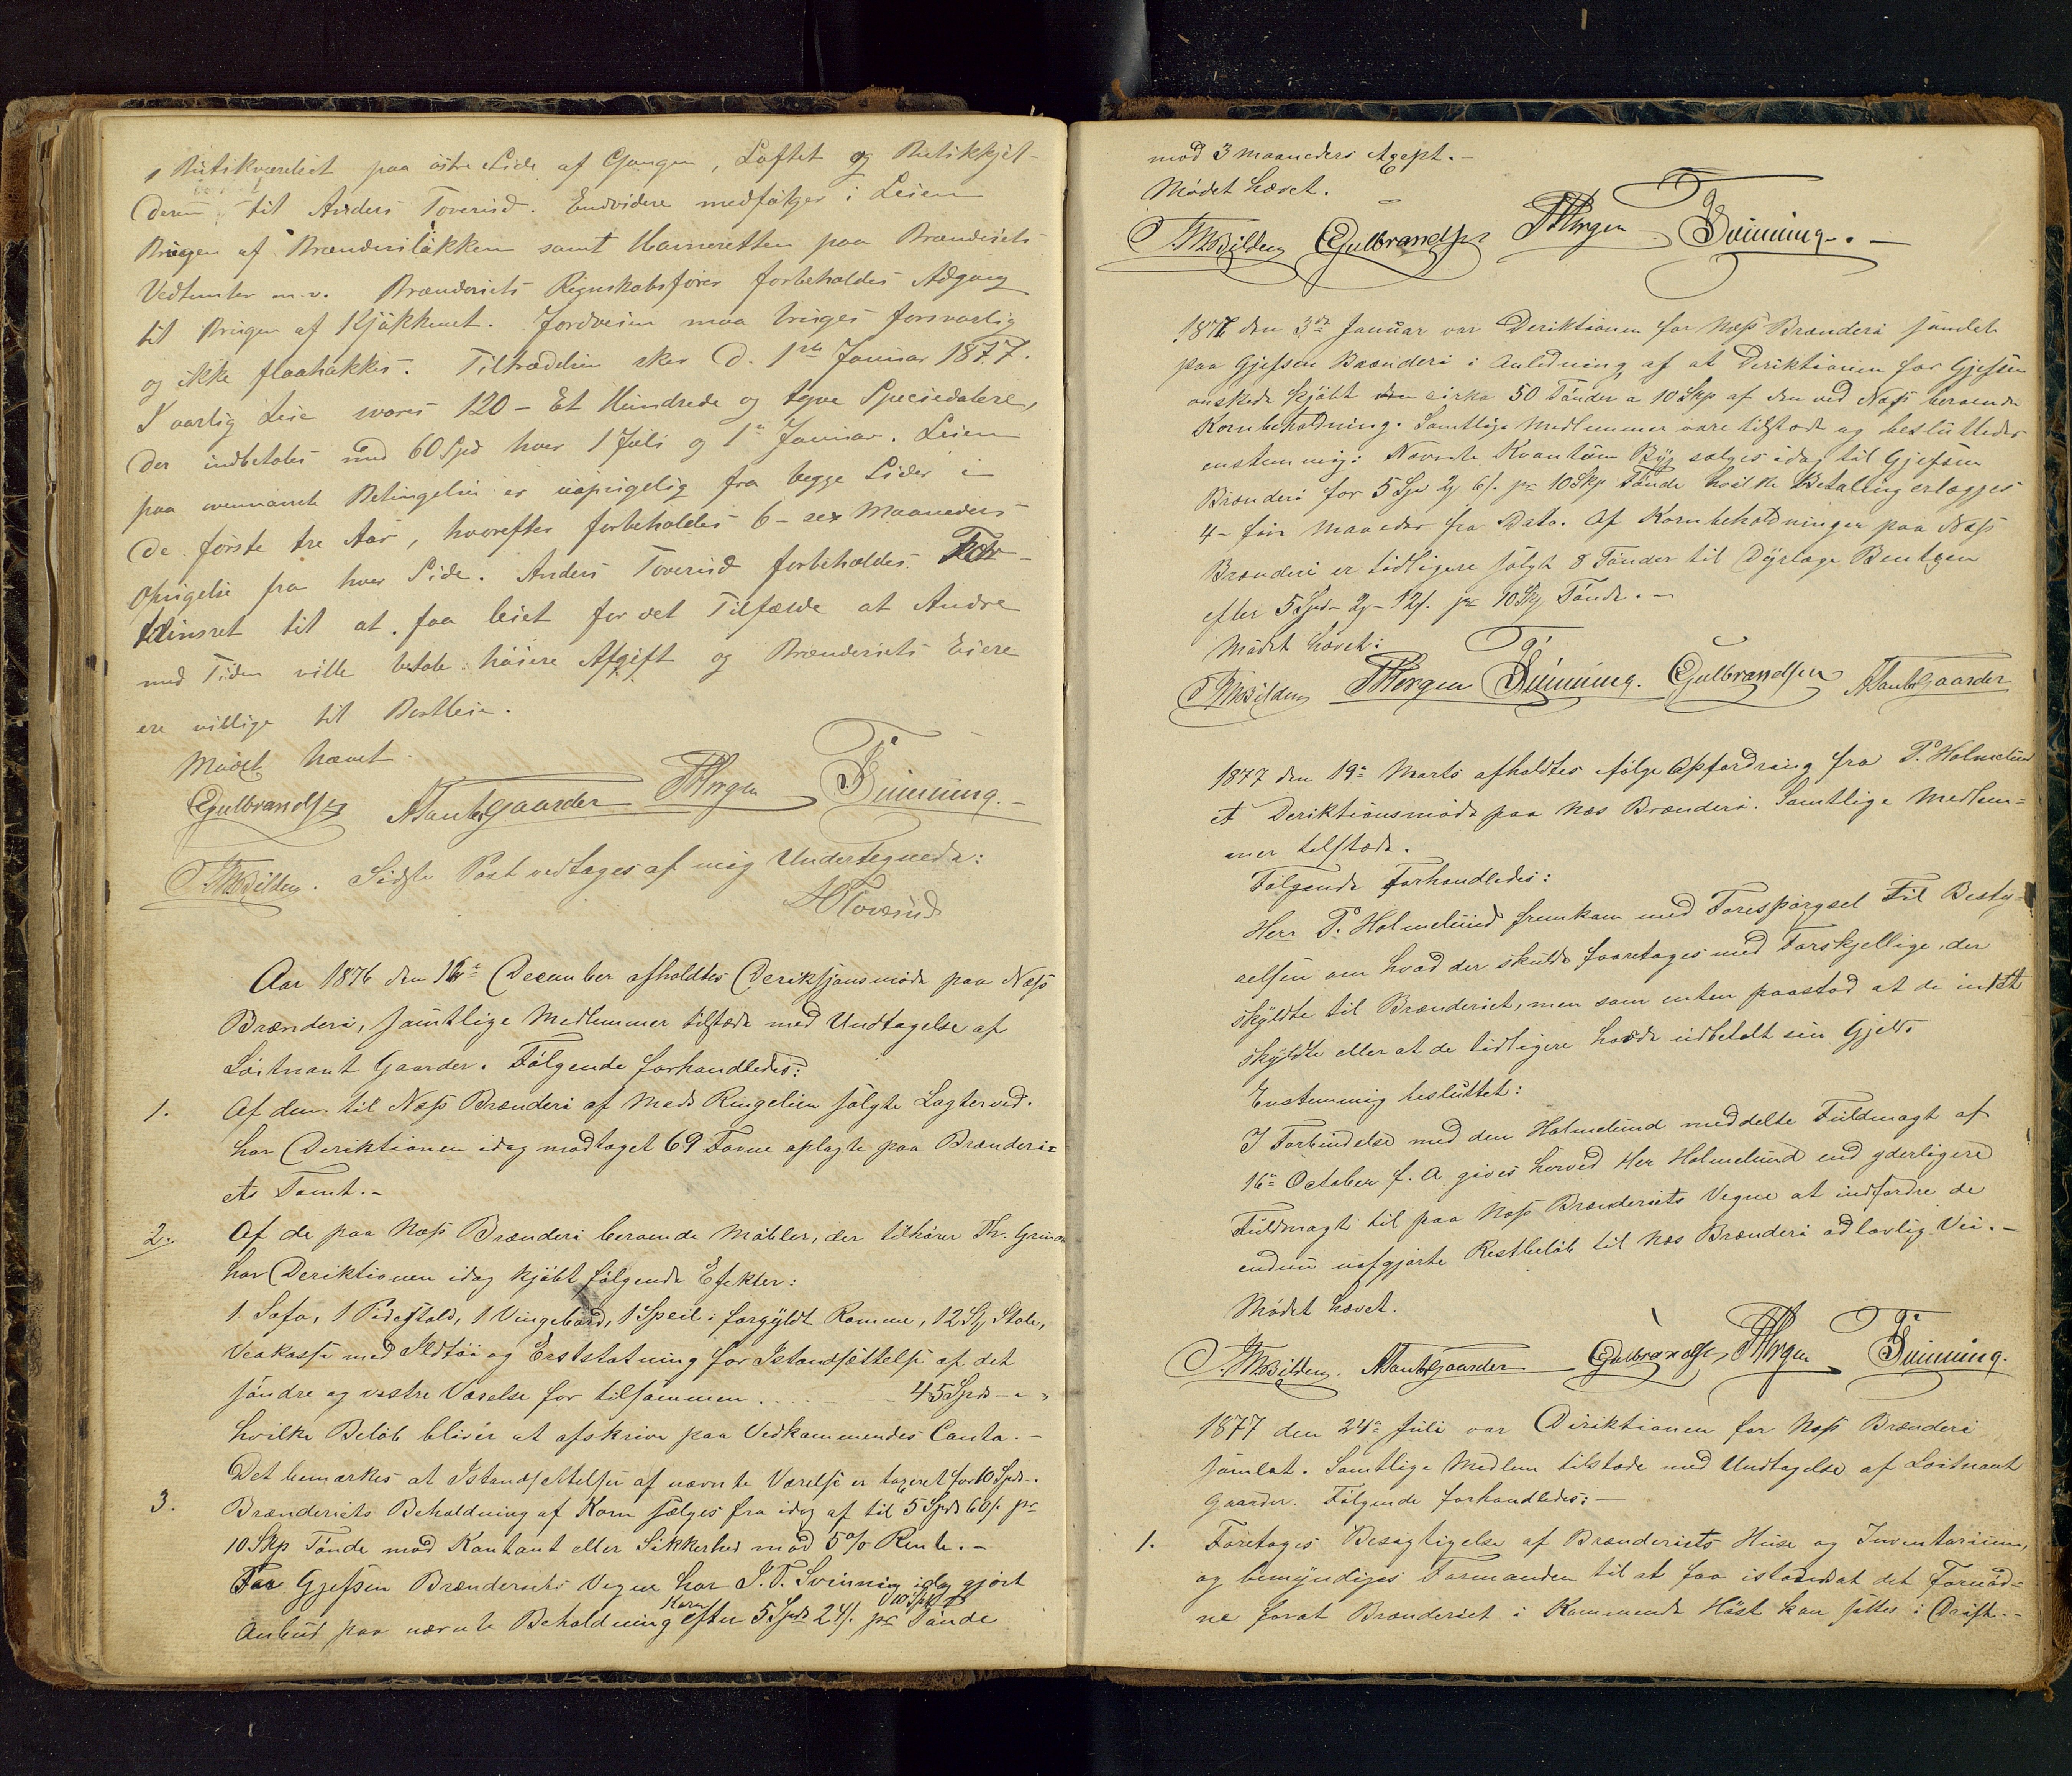 Butikværelset paa østre Side af Gangen, Loftet og Butikkjel-
deren til Anders Toverud. Endvidere medfølger i Leien
Brugen af Brænderiløkken samt Havneretten paa Brænderiets
Vedtomter m.v. Brænderiets Regnskabsfører forbeholdes Adgang
til Brugen af Kjøkkenet. Jordveien maa bruges forsvarlig
og ikke flaahakkes. Tiltrædelsen sker d. 1ste Januar 1877.
I aarlig Leie svares 120 - Et Hundrede og tyve Speciedalere,
der indbetales med 60 Spd hver 1 Juli og 1ste Januar. Leien
paa ovennævnte Betingelser er uopsigelig fra begge Sider i
de første tre Aar, hvorefter forbeholdes 6 - sex Maaneders
Opsigelse fra hver Side. Anders Toverud forbeholdes For-
trinsret til at faa leiet for det Tilfælde at Andre
med Tiden ville betale høiere Afgift og Brænderiets Eiere
ere villige til Bortleie.
Mødet hævet.
EGulbrandsen ATandbGaarder Horgen Svinning.
Bilden. Sidste Post vedtages af mig Undertegnede:
AToverud
Aar 1876 den 16de December afholdtes Deriksjonsmøde paa Næss
Brænderi, samtlige Medlemmer tilstæde med Undtagelse af
Løitnant Gaarder. Følgende forhandledes:
1. Af den til Næss Brænderi af Mads Ringelien solgte Lagterved
har Deriktionen idag modtaget 69 Favne oplagte paa Brænderi-
ets Tomt.-
2. Af de paa Næss Brænderi beroende Møbler, der tilhører Th.
har Deriktionen idag kjøbt følgende Efekter:
1 Sofa, 1 Pidestald, 1 Vingebord, 1 Speil i forgyldt Ramme, 12 St Stole,
Veakasse med Ildtøi og Erststatning for Istandsættelse af det
søndre og vestre Værelse for tilsammen . . . . 45 Spd - " "
hvilke Beløb bliver at afskrive paa Vedkommendes Conto.-
Det bemærkes at Istandsættelsen af nævnte Værelse er taxeret for 10 Spd.
3. Brænderiets Beholdning af Korn sælges fra idag af til 5 Spd 60 s. pr
10 Skp Tønde mod Kontant eller Sikkerhed mod 5 o/o Rente.-
Gjefsen Brænderiets Vegne har S.T. Svinning idag gjort
Anbud paa nævnte Korn Beholdning efter 5 Spd 24 s. pr 10 Skp Tønde
mod 3 Maaneders Axept.-
Mødet hævet.
Bilden EGulbrandsen Horgen Svinning.-
1877 den 3die Januar var Deriktionen for Næss Brænderi samlet
paa Gjefsen Brænderi i Anledning af at Deriktionen for Gjefsen
ønskede kjøbt cirka 50 Tønder a 10 Skp af den ved Næss beroende
Kornbeholdning. Samtlige Medlemmer vare tilstæde og besluttedes
enstemmig: Nævnte Kvantum Byg sælges idag til Gjefsen
Brænderi for 5 Spd 2 6 s. pr 10 Skp Tønde hvilke Betaling erlægges
4 - fire Maaneder fra Dato. Af Kornbeholdningen paa Næss
Brænderi er tidligere solgt 8 Tønder til Dyrlæge Bentzen
efter 5 Spd - 2 - 12 s. pr 10 Skp Tønde.-
Mødet hævet:
Bilden Horgen Svinning. EGulbrandsen ATandbGaarder
1877 den 19de Marts afholdtes ifølge Opfordring fra P. Holmelund
et Deriktionsmøde paa Næs Brænderi. Samtlige Medlem-
mer tilstæde.
Følgende forhandledes:
Herr P. Holmelund fremkom med Forespørgsel til Besty-
relsen om hvad der skulde foaretages med Forskjellige, der
skyldte til Brænderiet, men som enten paastod at de intet
skyldte eller at de tidligere havde udbetalt sin Gjeld.
Enstemmig besluttet:
I Forbindelse med den Holmelund meddelte Fuldmagt af
16de October f. A. gives herved Her Holmelund end yderligere
Fuldmagt til paa Næss Brænderiets Vegne at indfordre de
endnu uafgjorte Restbeløb til Næs Brænderi ad lovlig Vei.-
Mødet hævet.
Bilden. ATandbGaarder EGulbrandsen Horgen Svinning.
1877 den 24de Juli var Diriktionen for Næss Brænderi
samlet. Samtlige Medlem tilstæde med Undtagelse af Løitnant
Gaarder. Følgende forhandledes:-
1. Foretoges Besigtigelse af Brænderiets Huse og Inventarium,
og bemyndiges Formanden til at faa istandsat det Fornød-
ne forat Brænderiet i Kommende Høst kan sættes i Drift.-